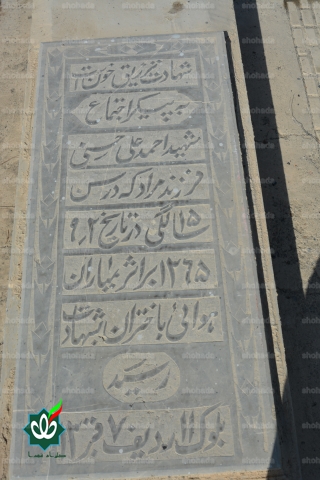 شهادت تزریق خون است
به پیکر اجتماع
شهید احمد علی حسنی
فرزند مراد که در سن
۱۵ سالگی در تاریخ ۹٫۲
۱۳۶۵ بر اثر بمباران
هوائی باختران بشهادت
رسید
بلوک ۱۱ ردیف ۷ قبر ۱۳